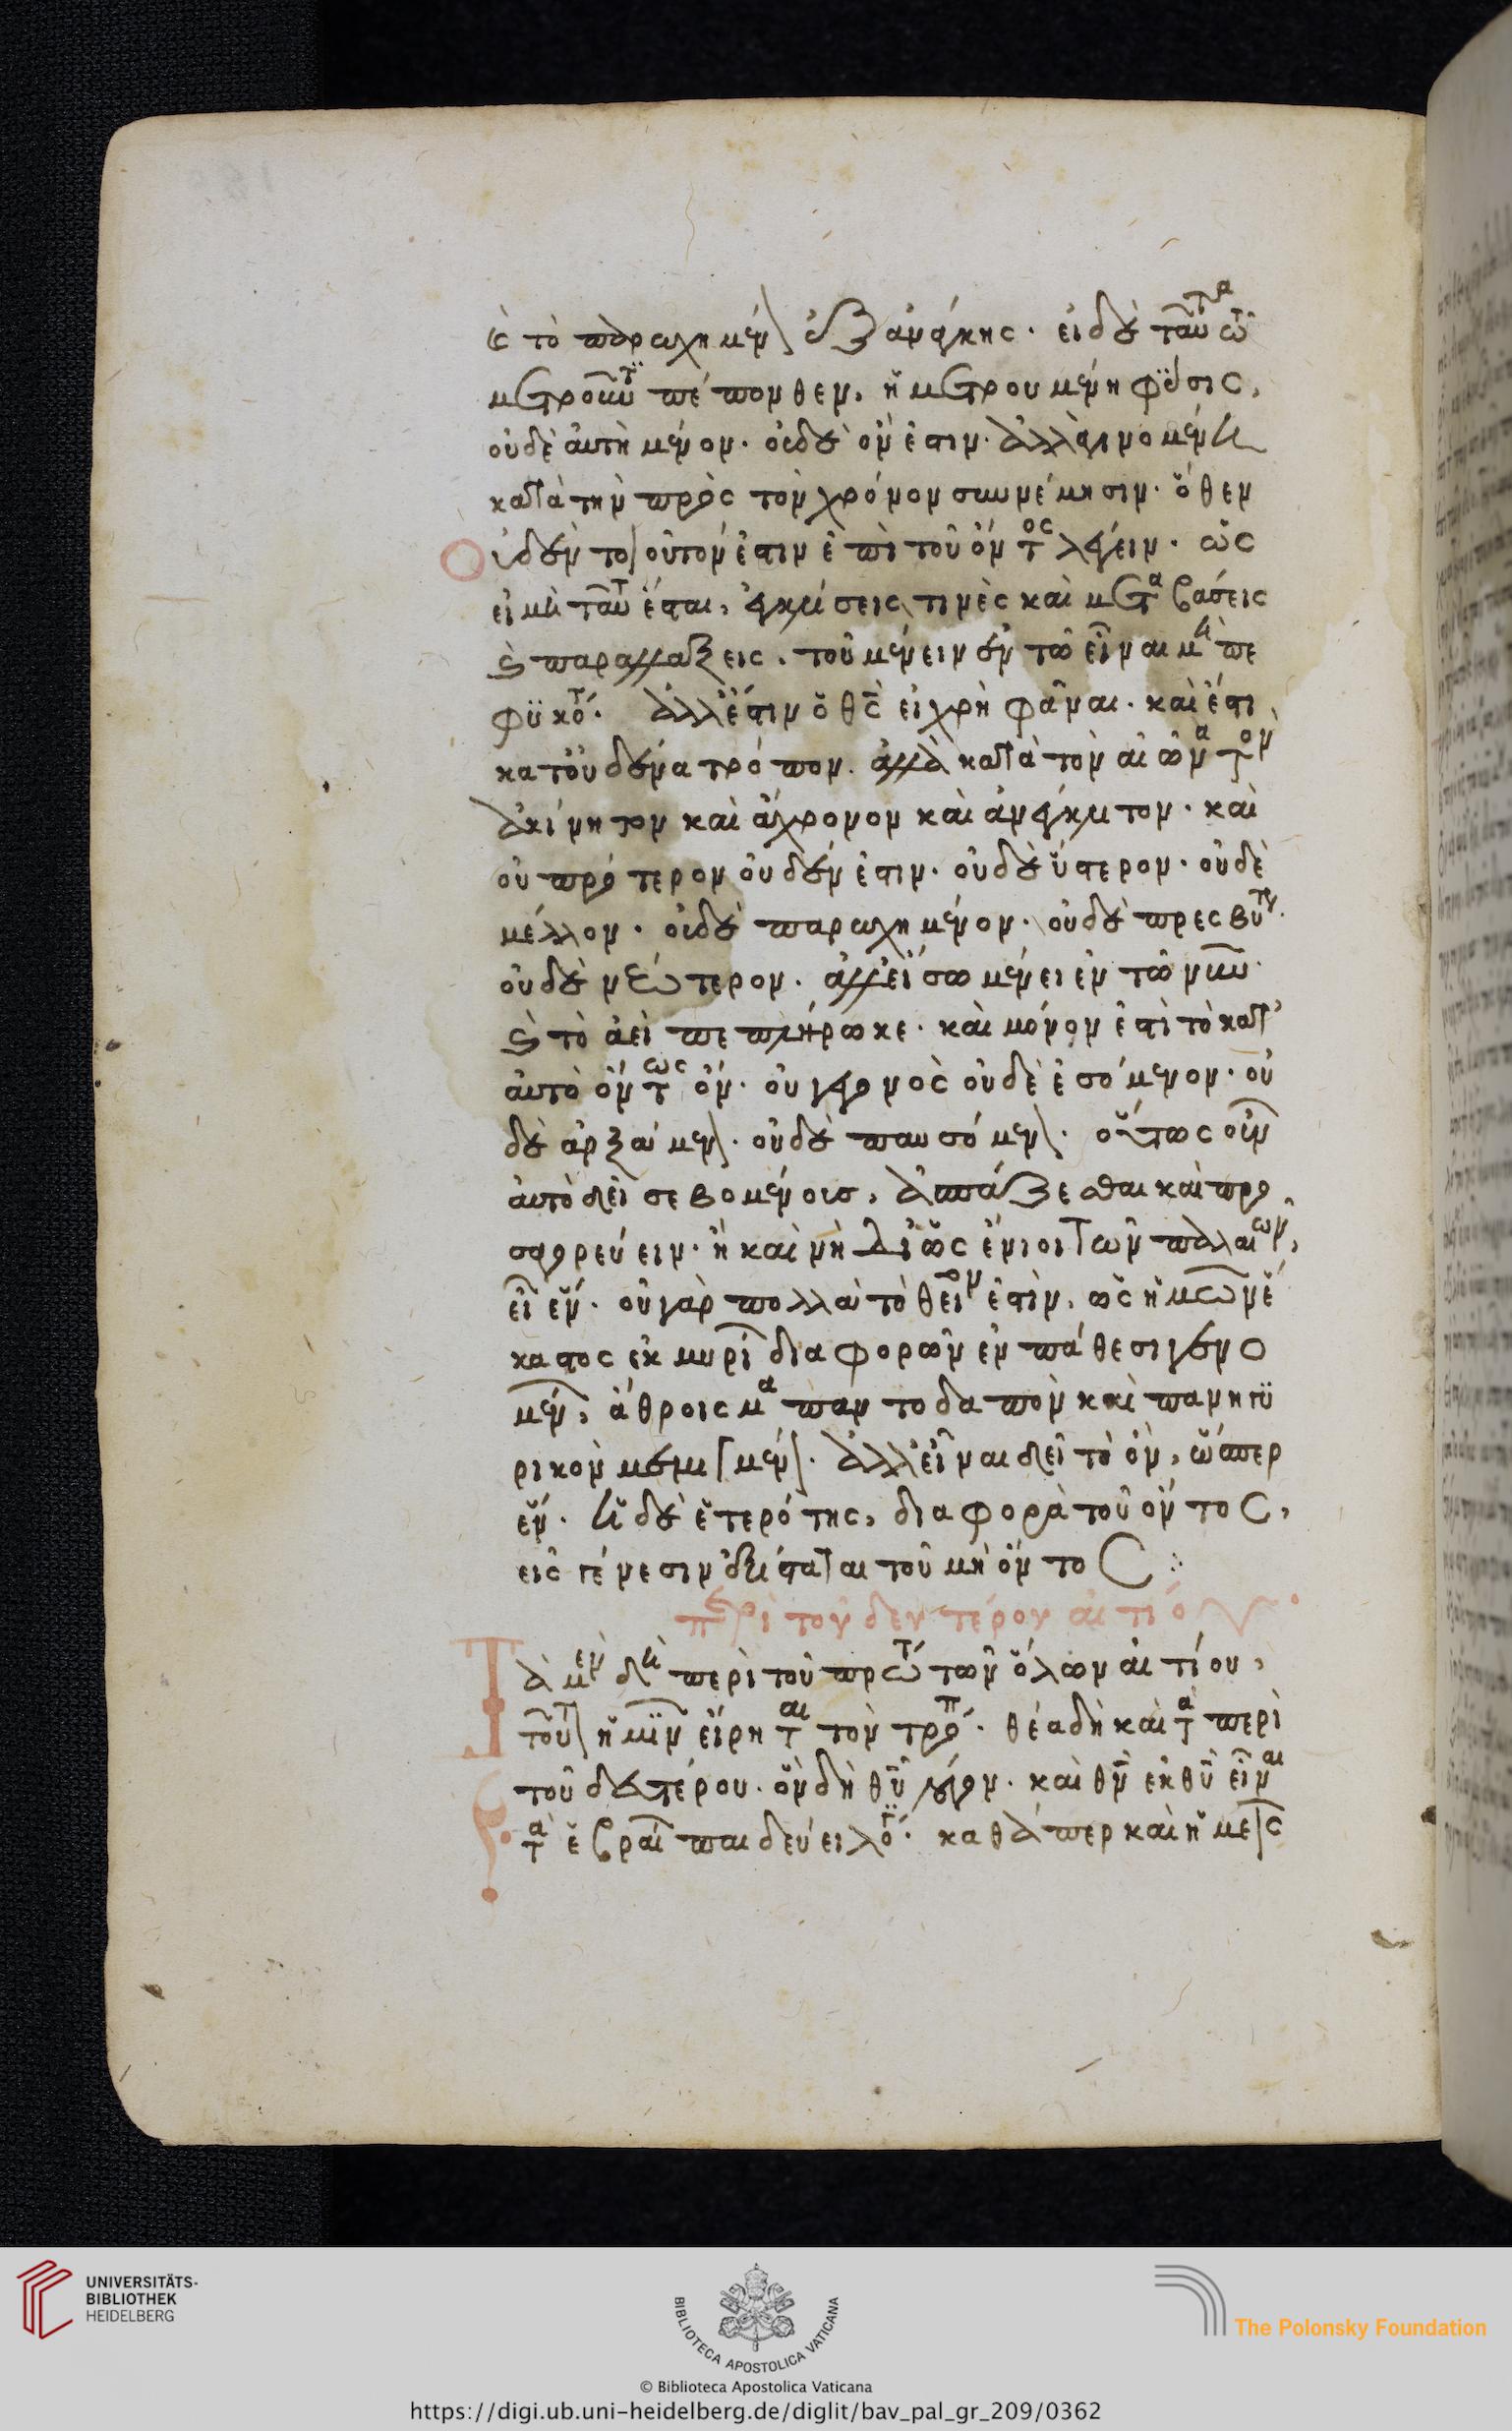 ἐς τὸ παρωχημέν ἐξ ἀνάγκης· εἰ δὲ ταῦτα τῶ
μετροῦντι πέπονθεν, ἡ μετρουμένη φϋσις,
οὐδὲ αὐτὴ μένον· οὐδὲ ὄν ἐστιν· ἀλλὰ γινόμεν
κατὰ τὴν πρὸς τὸν χρόνον συννέμησιν· ὅθεν
Οὐδὲν τοιοῦτόν ἐστιν ἐπὶ τοῦ ὄντος λέγειν· ὡς
εἰμὴ ταῦτ ἔσται, ἐγκλίσεις τινὲς καὶ μεταβάσεις
καὶ παραλλάξεις, τοῦ μένειν ἐν τῶ εἶναι μὴ πε
φϋκότ· ἀλλ' ἔστιν ὁ θς εἰ χρὴ φᾶναι· καὶ ἔστι
κατ' οὐδένα τρόπον· ἀλλὰ κατὰ τὸν αἰῶνα τον
ἀκίνητον καὶ ἄχρονον καὶ ἀνέγκλιτον· καὶ
οὐ πρότερον οὐδέν ἐστιν· οὐδὲ ὕστερον· οὐδὲ
μέλλον· οὐδὲ παρωχημένον· οὐδὲ πρεσβύτ
οὐδὲ νεώτερον· ἀλλ' εἴσω μένει ἐν τῶ νῦν·
καὶ τὸ ἀεὶ πεπλήρωκε· καὶ μόνον ἐστὶ τὸ κατ'
αὐτὸ ὄντως ὄν· οὐ γεγονὸς οὐδὲ ἐσόμενον· οὐ
δὲ ἀρξαίμεν· οὐδὲ παυσόμεν· οὕτως οὖν
αὐτὸ δεῖ σεβομένοις, ἀσπάζεσθαι καὶ προ
σαγορεύειν· ἢ καὶ νὴ Δί' ὡς ἔνιοι τῶν παλαιῶν,
εἶ ἕν· οὐ γὰρ πολλὰ τὸ θεῖον ἐστὶν, ὡς ἡμῶν ἕ
καστος ἐκ μυρί διαφορῶν ἐν πάθεσι γενο
μέν, ἄθροισμα παντοδαπὸν καὶ πανηγϋ
ρικὸν μεμιγμέν· ἀλλ' εἶναι δεῖ τὸ ὄν, ὥσπερ
ἕν· ἡ δὲ ἑτερότης, διαφορὰ τοῦ ὄντος,
εἰς γένεσιν ἐξίσταται τοῦ μὴ ὄντος :
περὶ τοῦ δευτέρου αἰτίου
Τὰ μὲν δὴ περὶ τοῦ πρώτ τῶν ὅλων αἰτίου,
τοῦτ ἡμῖν εἴρηται τὸν τρόπ· θέα δὴ καὶ τὰ περὶ
τοῦ δευτέρου· ὃν δὴ θυ λόγον· καὶ θν ἐκ θυ εἶναι
τὰ ἑβραί παιδεύει λό· καθάπερ καὶ ἡμεῖς
UNIVERSITÄTS-
BIBLIOTHEK
HEIDELBERG
BIBLIOTECA APOSTOLICA VATICANA
The Polonsky Foundation
© Biblioteca Apostolica Vaticana
https://digi.ub.uni-heidelberg.de/diglit/bav_pal_gr_209/0362